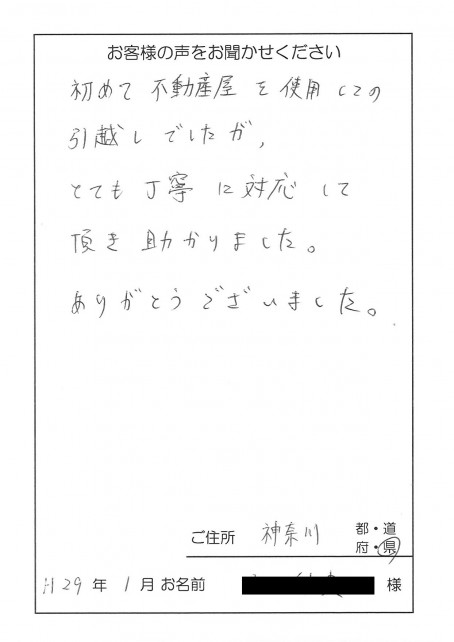 お客様の声をお聞かせください
初めて 不動産屋 を 使用 しての
引越し でしたが、
とても 丁寧 に 対応 して
頂き 助かりました。
ありがとうございました。
ご住所 神奈川 都・道
府・県
H29 年 1 月 お名前 様